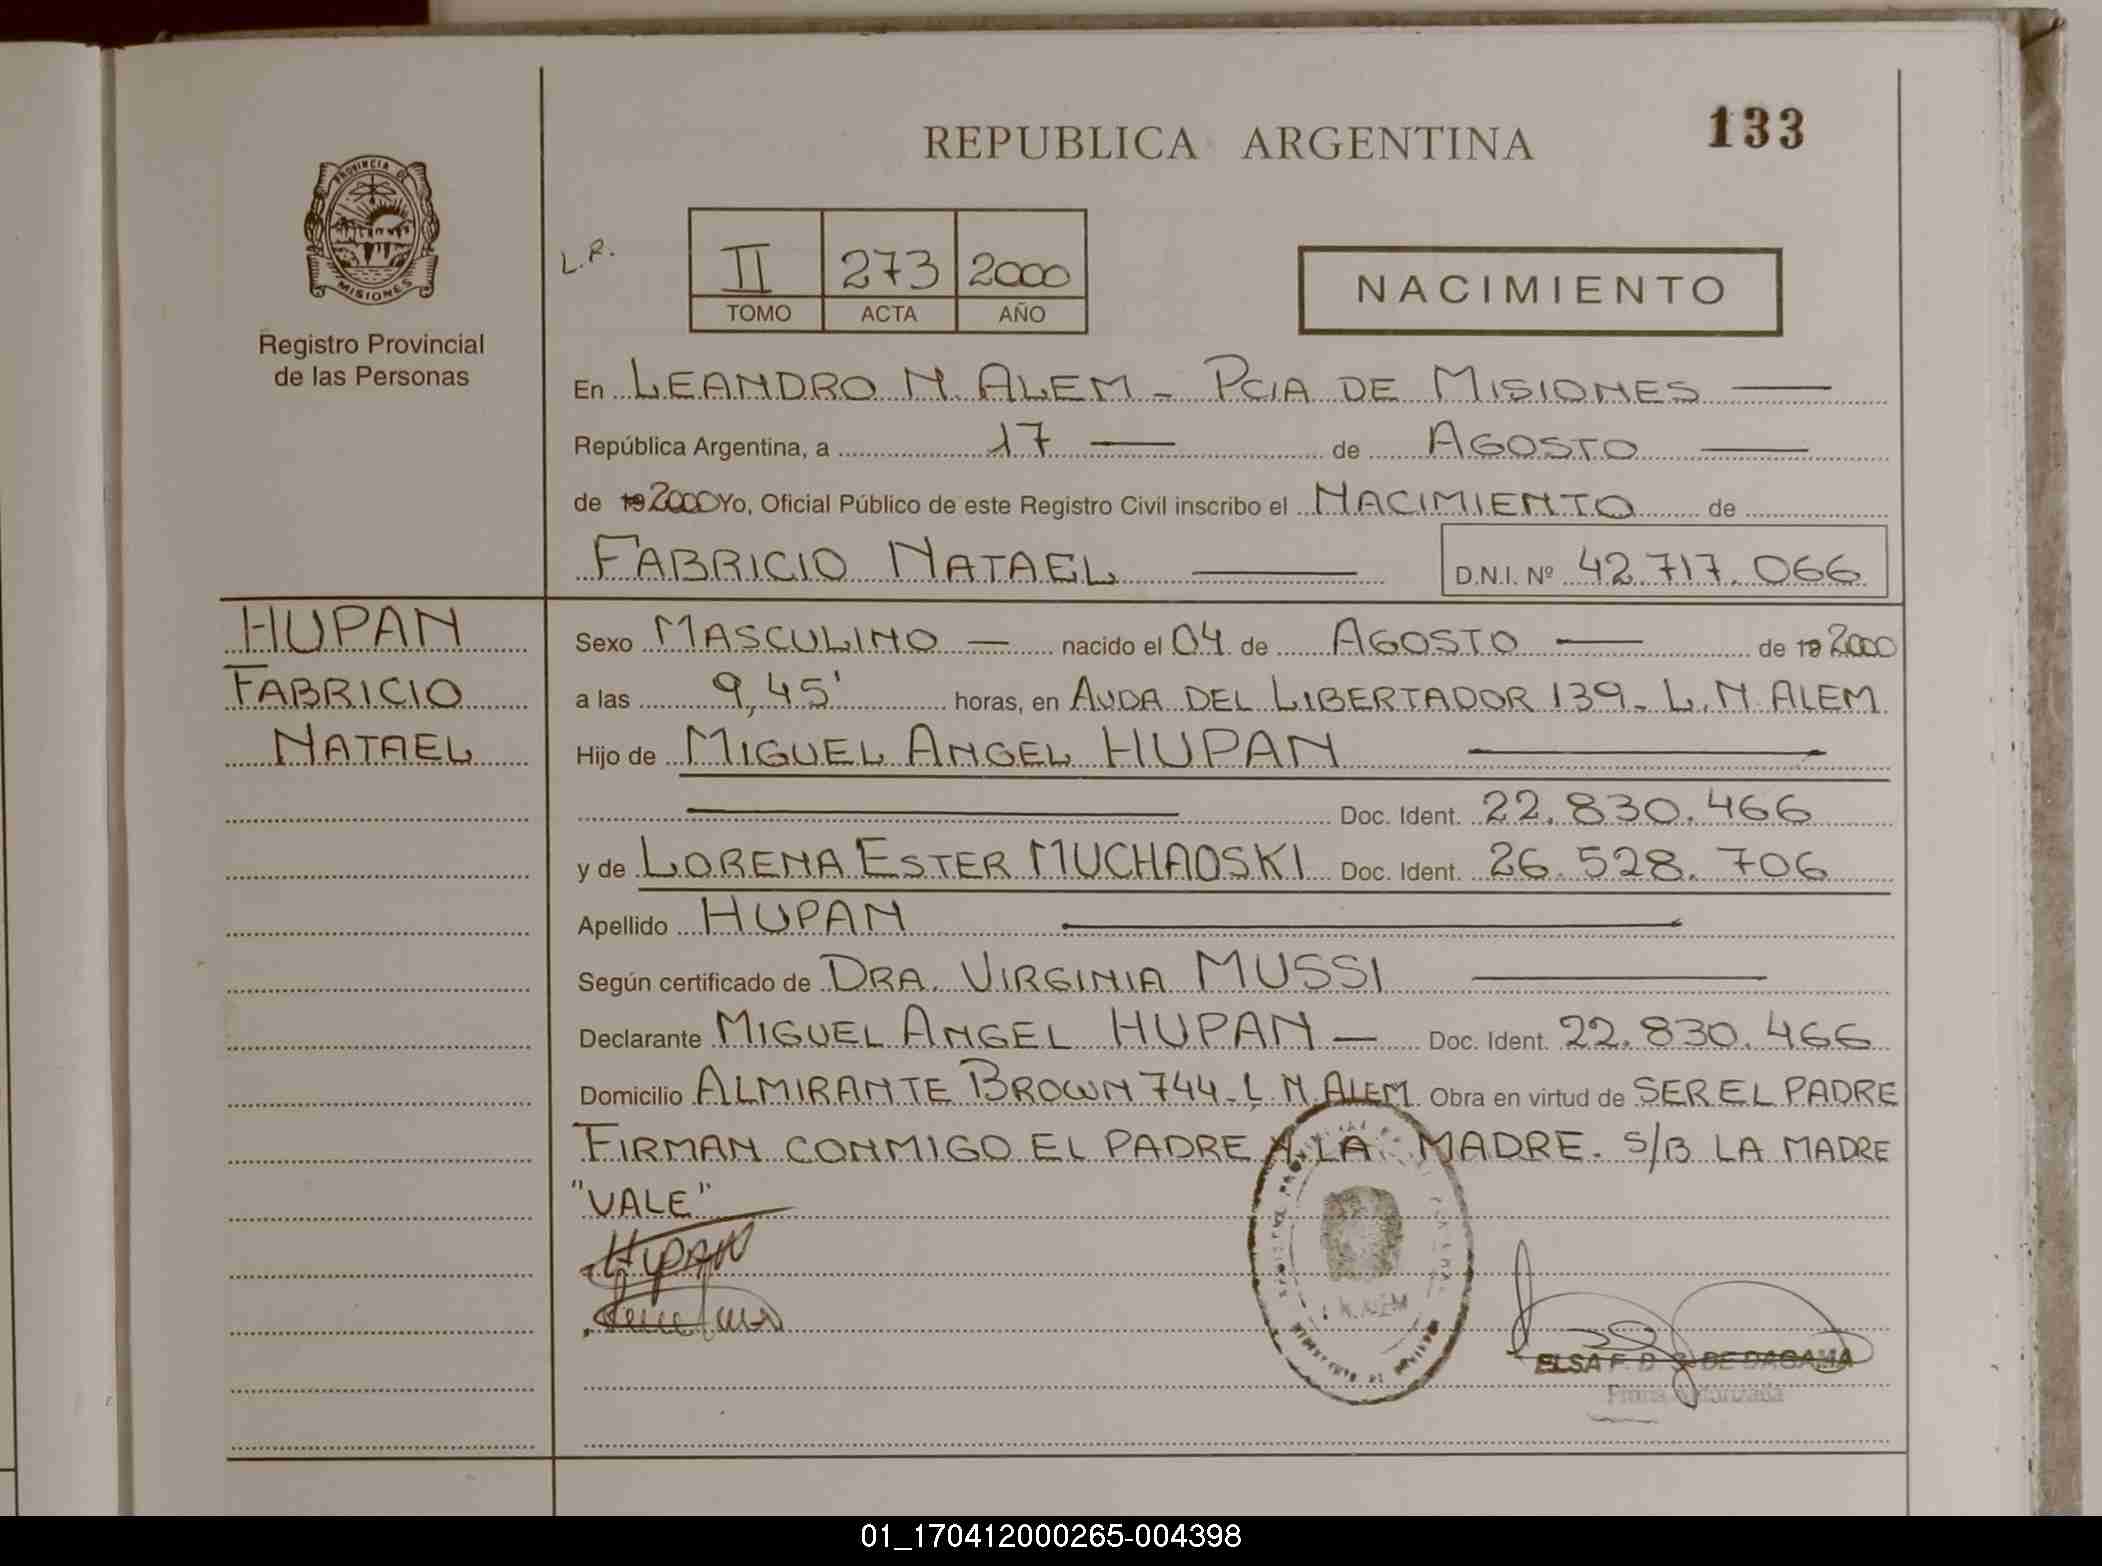 133
REPUBLICA ARGENTINA
PROVINCIA DE
MISIONES
L.R.
II 273 2000
TOMO ACTA AÑO
NACIMIENTO
Registro Provincial
de las Personas
En LEANDRO N. ALEM - PCIA DE MISIONES
República Argentina, a 17 de AGOSTO
de 19 2000 Yo, Oficial Público de este Registro Civil inscribo el NACIMIENTO de
FABRICIO NATAEL D.N.I. Nº 42.717.066
HUPAN
FABRICIO
NATAEL
Sexo MASCULINO nacido el 04 de AGOSTO de 19 2000
a las 9,45' horas, en AVDA DEL LIBERTADOR 139 - L. N. ALEM
Hijo de MIGUEL ANGEL HUPAN
Doc. Ident. 22.830.466
y de LORENA ESTER MUCHAOSKI Doc. Ident. 26.528.706
Apellido HUPAN
Según certificado de DRA. VIRGINIA MUSSI
Declarante MIGUEL ANGEL HUPAN Doc. Ident. 22.830.466
Domicilio ALMIRANTE BROWN 744 - L. N. ALEM Obra en virtud de SER EL PADRE
FIRMAN CONMIGO EL PADRE Y LA MADRE. S/B LA MADRE
"VALE"
HUPAN
ELSA F. D. DE DAGAMA
Firma Autorizada
01_170412000265-004398